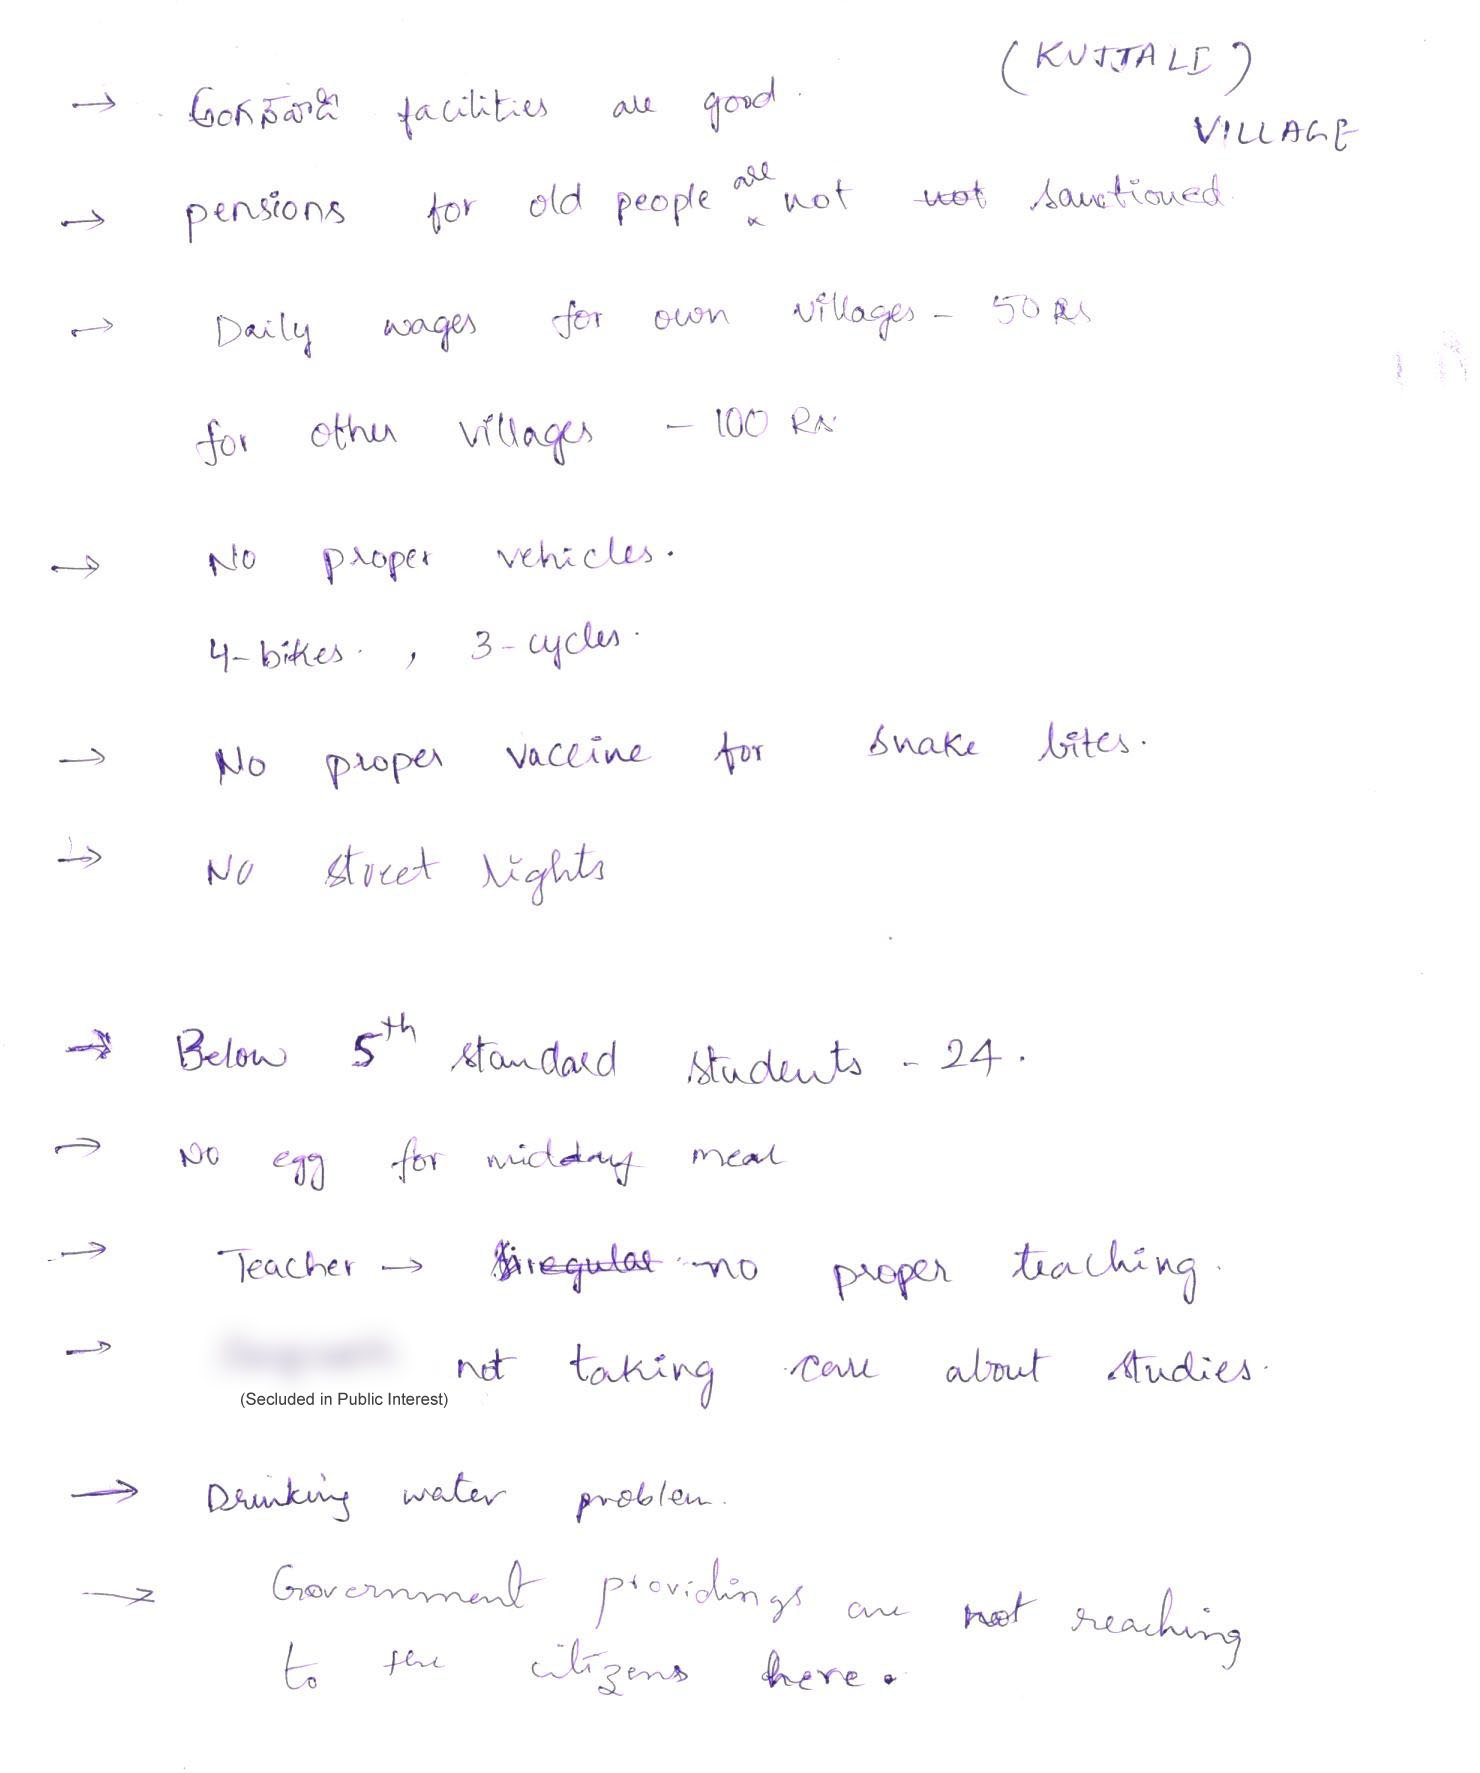 (KUJJALI)
VILLAGE
→ అంగన్వాడి facilities are good.
→ pensions for old people are not not sanctioned.
→ Daily wages for own villages - 50 Rs
for other villages - 100 Rs.
→ No proper vehicles.
4-bikes. , 3-cycles.
→ No proper vaccine for snake bites.
→ No street lights
→ Below 5th standard students - 24.
→ No egg for midday meal
→ Teacher → irregular no proper teaching.
→ not taking care about studies.
(Secluded in Public Interest)
→ Drinking water problem.
→ Government providings are not reaching
to the citizens here.